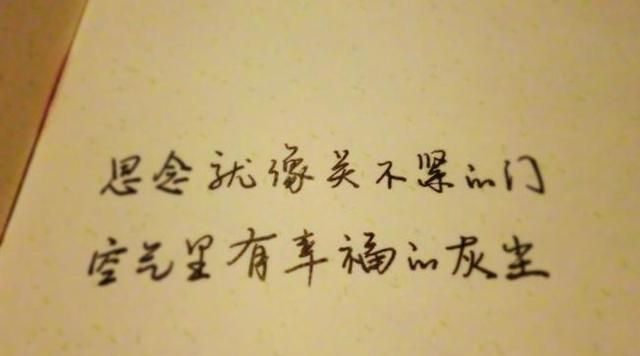 思念就像关不紧的门
空气里有幸福的灰尘